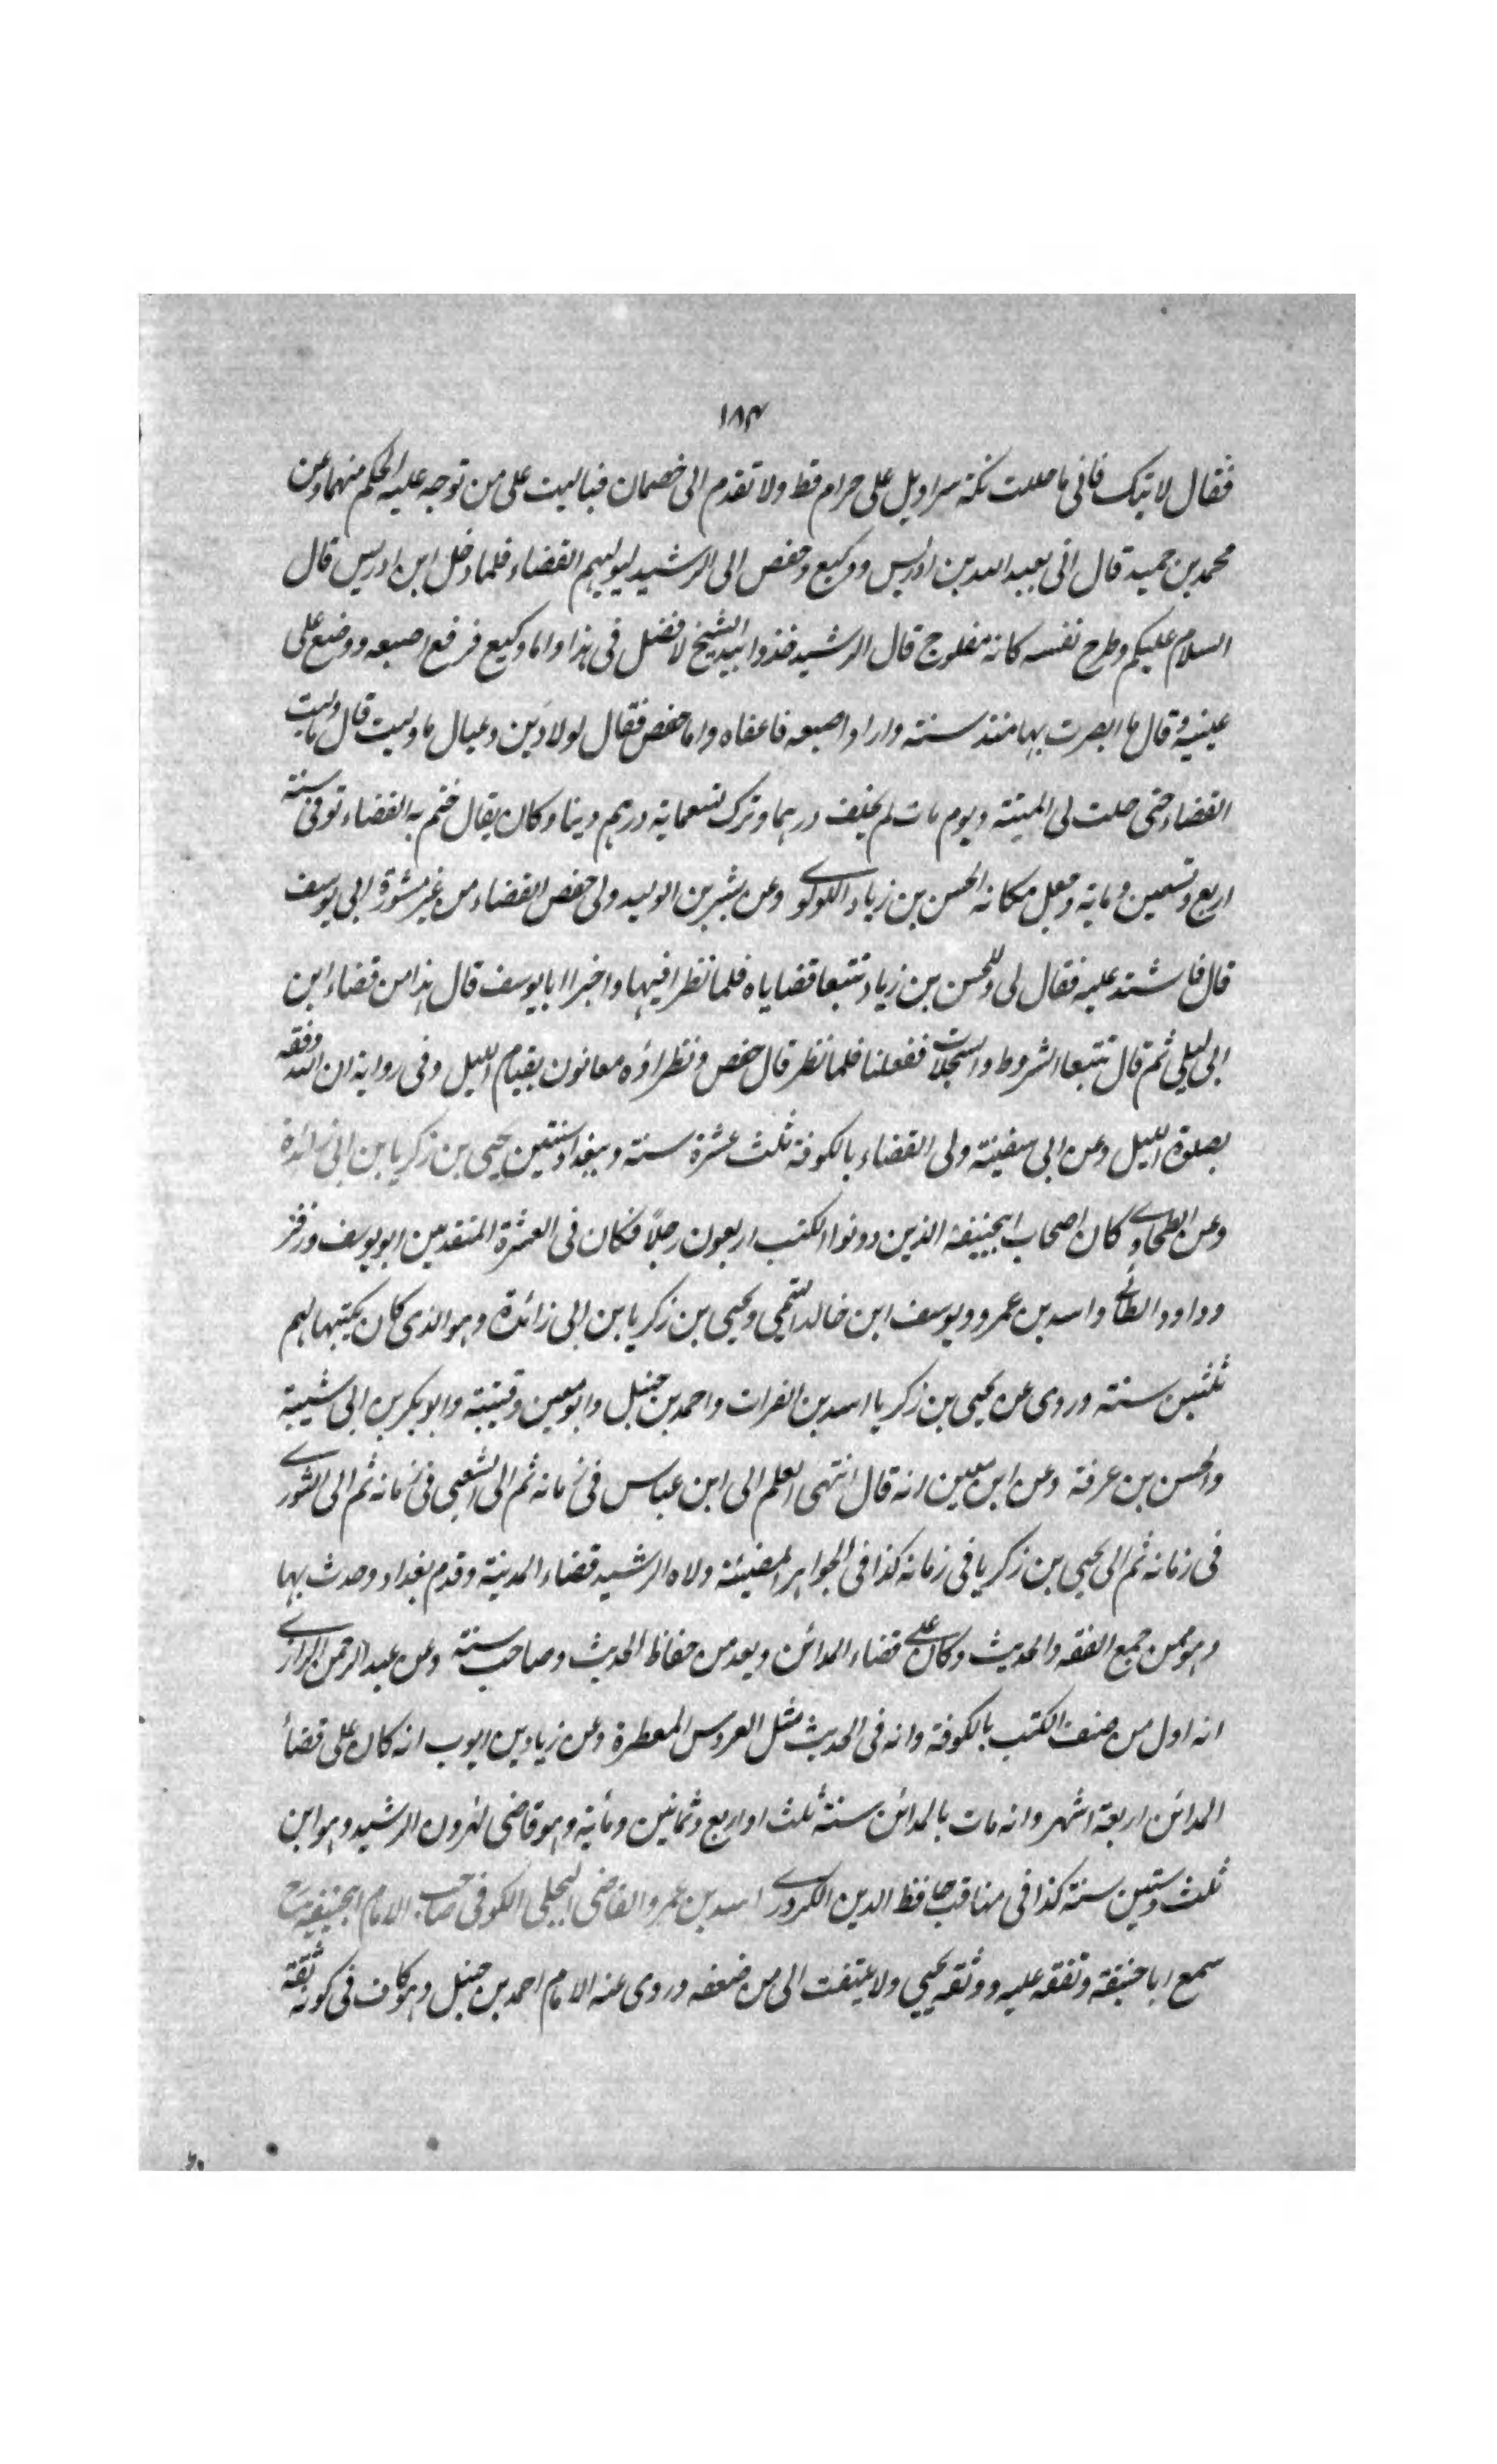 ١٨٤
فقال لا تبك فانى ما حللت تكة سراويل على حرام قط ولا تقدم الى خصمان فباليت على من توجه عليه الحكم منهما وعن
محمد بن حميد قال اتى بعبد الله بن ادريس ووكيع وحفص الى الرشيد ليوليهم القضاء فلما دخل ابن ادريس قال
السلام عليكم وطرح نفسه كانه مفلوج قال الرشيد خذوا بيد الشيخ لا فضل فى هذا واما وكيع فرفع اصبعه ووضع على
عينيه وقال ما ابصرت بها منذ سنته واراد اصبعه فاعفاه واما حفص فقال لولا دَين وعيال ما وليت قال ما وليت
القضاء حتى حلت لى الميتة ويوم مات لم يخلف درهما وترك تسعماية درهم دينا وكان يقال ختم به القضاء توفى سنة
اربع وتسعين وماية وجعل مكانه الحسن بن زياد اللولوى وعن بشر بن الوليد ولى حفص القضاء من غير مشورة ابى يوسف
قال فاشتد عليه فقال لى وللحسن بن زياد تتبعا قضاياه فلما نظرا فيها واخبرا ابا يوسف قال هذا من قضاء ابن
ابى ليلى ثم قال تتبعا الشروط والسجلات ففعلنا فلما نظر قال حفص ونظراؤه معانون بقيام الليل وفى رواية ان الله وفقه
بصلوة الليل وعن ابى سفينة ولى القضاء بالكوفة ثلث عشرة سنة وببغداد سنتين يحيى بن زكريا بن ابى زائدة
وعن الطحاوى كان اصحاب ابيحنيفة الذين دونوا الكتب اربعون رجلاً فكان فى العشرة المتقدمين ابو يوسف وزفر
وداود الطائى واسد بن عمرو ويوسف ابن خالد التيمى ويحيى بن زكريا بن ابى زائدة وهو الذى كان يكتبها لهم
ثلثين سنة وروى عن يحيى بن زكريا اسد بن الفرات واحمد بن حنبل وابو معين وقتيبة وابو بكر بن ابى شيبة
والحسن بن عرفة وعن ابن معين انه قال انتهى العلم الى ابن عباس فى زمانه ثم الى الشعبى فى زمانه ثم الى الثورى
فى زمانه ثم الى يحيى بن زكريا فى زمانه كذا فى الجواهر المضيئة ولاه الرشيد قضاء المدينة وقدم بغداد وحدث بها
وهو ممن جمع الفقه والحديث وكان على قضاء المدائن ويعد من حفاظ الحديث وصاحب سنة وعن عبد الرحمن الرازى
انه اول من صنف الكتب بالكوفة وانه فى الحديث مثل العروس المعطرة وعن زياد بن ايوب انه كان على قضاء
المدائن اربعة اشهر وانه مات بالمدائن سنة ثلث او اربع وثمانين ومأية وهو قاضى لهرون الرشيد وهو ابن
ثلث وستين سنة كذا فى مناقب حافظ الدين الكردرى اسد بن عمرو القاضى البجلى الكوفى صاحب الامام ابيحنيفة
سمع ابا حنيفة وتفقه عليه ووثقه يحيى ولا يلتفت الى من ضعفه وروى عنه الامام احمد بن حنبل وهو كاف فى كونه ثقة